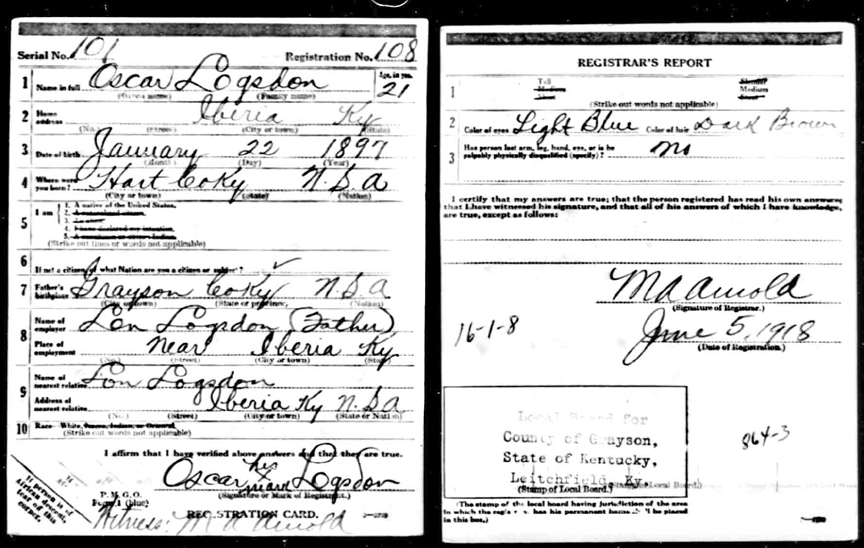 Serial No. 101 Registration No. 108
1 Name in full Oscar Logsdon Age, in yrs. 21
(Given name) (Family name)
2 Home address Iberia Ky
(No.) (Street) (City or town) (State)
3 Date of birth January 22 1897
(Month) (Day) (Year)
4 Where were you born? Hart Co Ky U.S.A
(City or town) (State) (Nation)
5 I am
1. A native of the United States.
2. A naturalized citizen.
3. An alien.
4. I have declared my intention.
5.
(Strike out lines or words not applicable)
6 If not a citizen, of what Nation are you a citizen or subject?
7 Father's birthplace Grayson Co Ky U.S.A
(City or town) (State or province) (Nation)
8 Name of employer Lon Logsdon (Father)
Place of employment Near Iberia Ky
(No.) (Street) (City or town) (State)
9 Name of nearest relative Lon Logsdon
Address of nearest relative Iberia Ky U.S.A
(No.) (Street) (City or town) (State or Nation)
10 Race—White,
(Strike out words not applicable)
I affirm that I have verified above answers and that they are true.
Oscar his mark Logsdon
(Signature or Mark of Registrant.)
If person is of African descent, tear off this corner.
P. M. G. O.
Form 1 (blue) REGISTRATION CARD.
Witness: M A Arnold
REGISTRAR'S REPORT
1 Tall Medium Short Slender Medium Stout
(Strike out words not applicable)
2 Color of eyes Light Blue Color of hair Dark Brown
3 Has person lost arm, leg, hand, eye, or is he palpably physically disqualified (specify)? No
I certify that my answers are true; that the person registered has read his own answers;
that I have witnessed his signature, and that all of his answers of which I have knowledge,
are true, except as follows:
M A Arnold
(Signature of Registrar.)
16-1-8
June 5, 1918
(Date of Registration.)
Local Board for
County of Grayson,
State of Kentucky,
Leitchfield, Ky.
(Stamp of Local Board.)
864-3
(The stamp of the local board having jurisdiction of the area
in which the registrant has his permanent home shall be placed
in this box.)